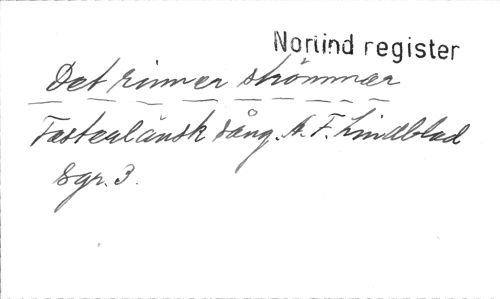 Norlind register
Det rinner strömmar
Fosterländsk sång. A. F. Lindblad
Sgr. 3.